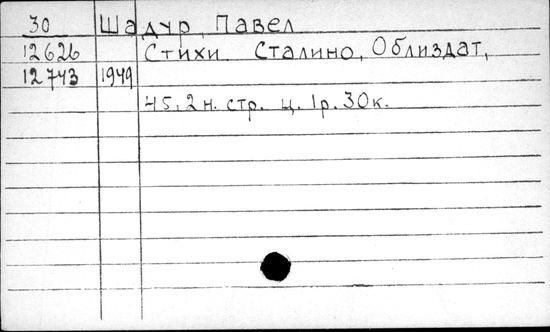 30 Шадур, Павел
12626 Стихи. Сталино, Облиздат,
12743 1949
45, 2 н. стр. ц. 1р. 30к.